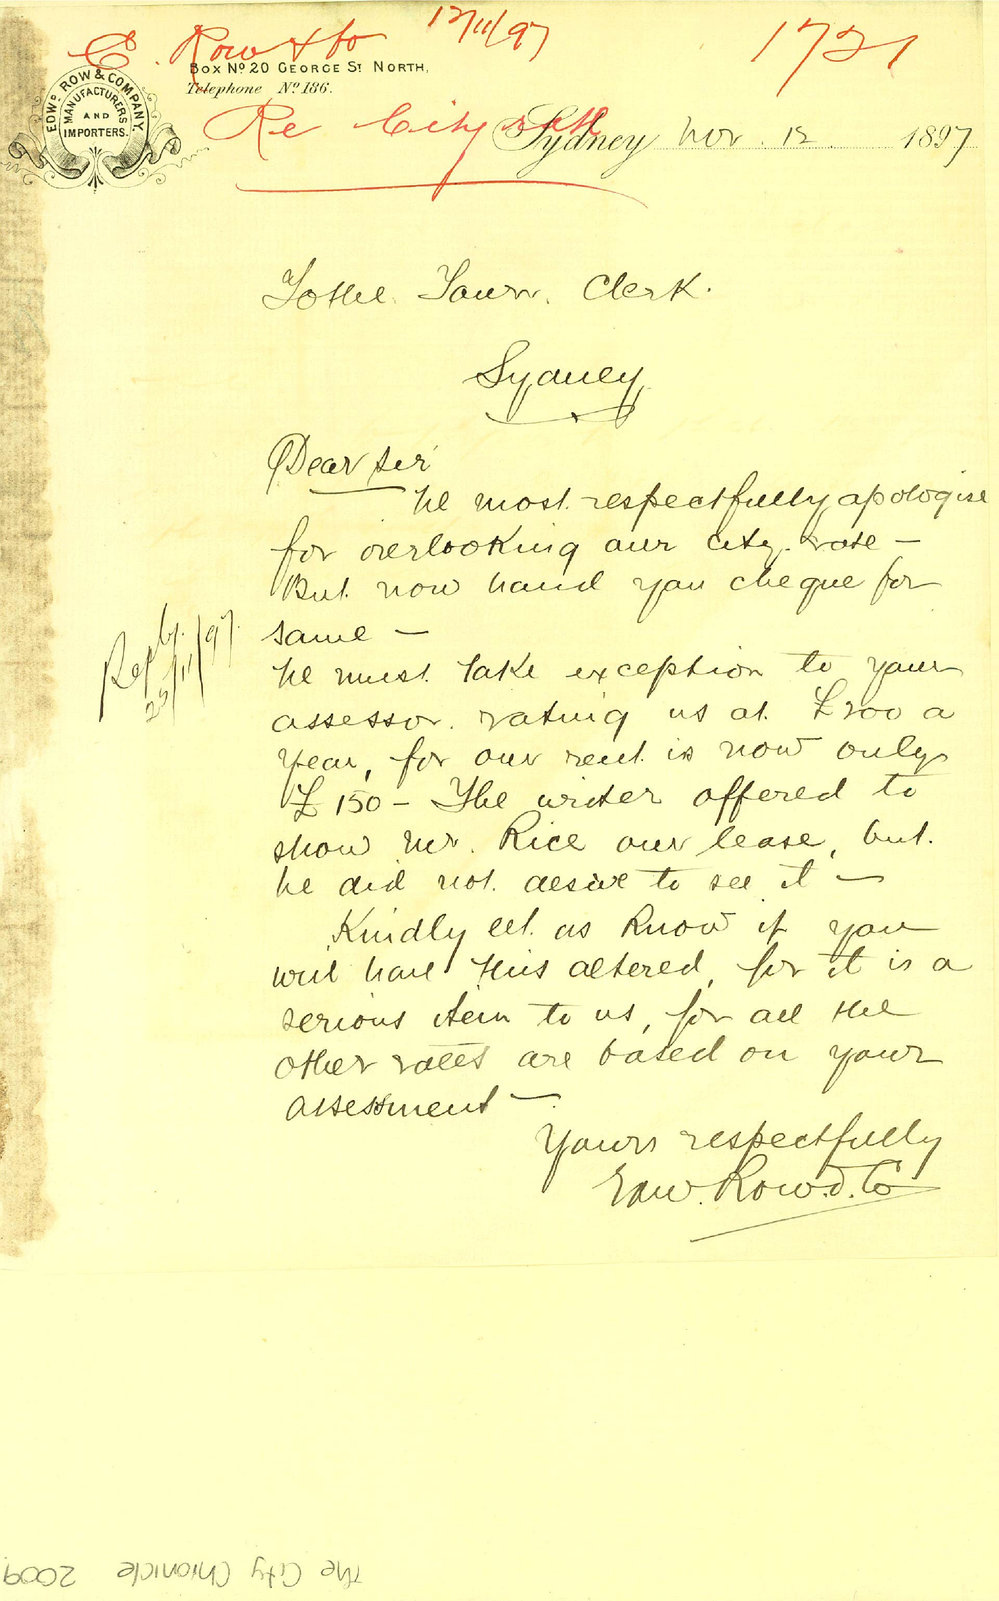 E. Row & Co 12/11/97 1721
BOX Nº 20 GEORGE ST NORTH,
Telephone Nº 186.
EDWD. ROW & COMPANY.
MANUFACTURERS
AND
IMPORTERS.
Re City rate
Sydney Nov. 12 1897
To the Town Clerk.
Sydney
Dear Sir
We most respectfully apologise
for overlooking our city rate –
But now hand you cheque for
same –
We must take exception to your
assessor rating us at £200 a
year, for our rent is now only
£150 – The writer offered to
show Mr. Rice our lease, but
he did not desire to see it –
Kindly let us know if you
will have this altered, for it is a
serious item to us, for all the
other rates are based on your
assessment –
Yours respectfully
Edw. Row & Co
Rep by
25/11/97
The City Chronicle 2009